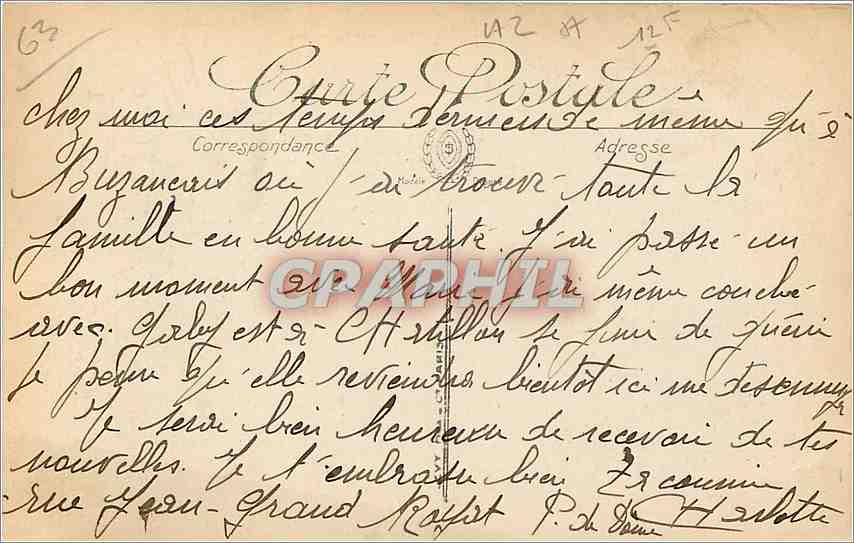 63 12F
Carte Postale
chez moi ces temps derniers de même qu'à
Correspondance Adresse
Buzançais où j'ai trouvé toute la
famille en bonne santé. J'ai passé un
bon moment avec Marie j'ai même couché
CPAPHIL
avec. Gaby est à Chatillon se finir de guérir
Je pense qu'elle reviendra bientôt ici me desennuyer
Je serai bien heureuse de recevoir de tes
nouvelles. Je t'embrasse bien Ta cousine
rue Jean-Grand Royat P. de Dôme Charlotte